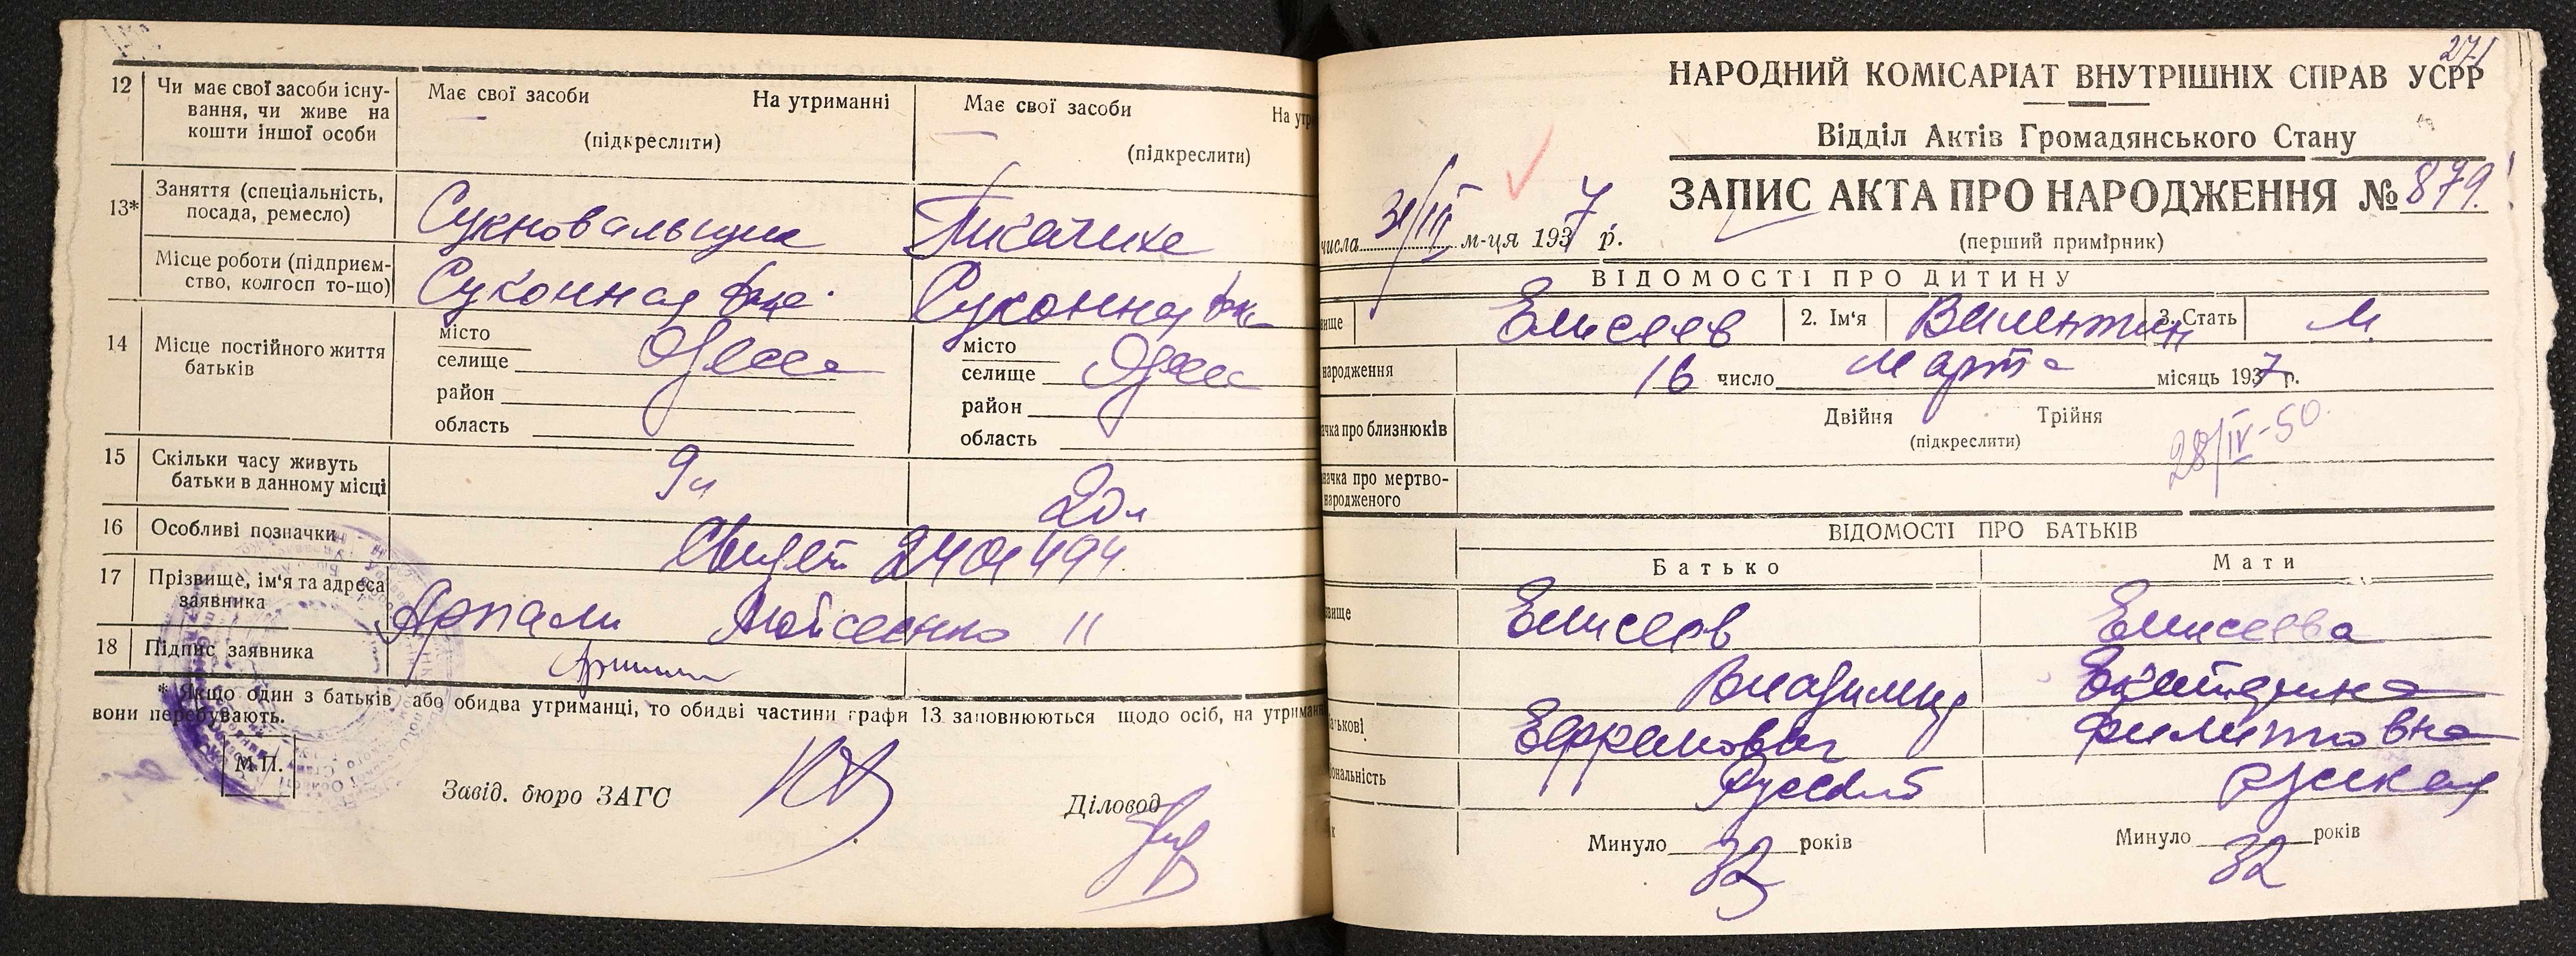 12 Чи має свої засоби існу-
вання, чи живе на
кошти іншої особи
Має свої засоби На утриманні
(підкреслити)
Має свої засоби На утр
(підкреслити)
13* Заняття (спеціальність,
посада, ремесло)
Сукновальщик
Місце роботи (підприєм-
ство, колгосп то-що)
Суконная фа-ка Суконная фа-ка
14 Місце постійного життя
батьків
місто
селище Одесса
район
область
місто
селище Одесса
район
область
15 Скільки часу живуть
батьки в данному місці
9 л 20 л
16 Особливі позначки
Свидет 2401494
17 Прізвище, ім'я та адреса
заявника
Мойсеенко 11
18 Підпис заявника
* Якщо один з батьків або обидва утриманці, то обидві частини графи 13 заповнюються щодо осіб, на утриман
вони перебувають.
М.П.
Завід. бюро ЗАГС Діловод
271
НАРОДНИЙ КОМІСАРІАТ ВНУТРІШНІХ СПРАВ УСРР
Відділ Актів Громадянського Стану
ЗАПИС АКТА ПРО НАРОДЖЕННЯ № 879.
числа 31/III м-ця 1937 р.
(перший примірник)
ВІДОМОСТІ ПРО ДИТИНУ
вище Елисеев 2. Ім'я Валентин 3. Стать М.
народження 16 число Марта місяць 1937 р.
ачка про близнюків Двійня Трійня
(підкреслити)
28/IV-50.
начка про мертво-
народженого
ВІДОМОСТІ ПРО БАТЬКІВ
Батько Мати
вище Елисеев Елисеева
Владимир Екатерина
атькові Ефремович Филипповна
ональність Русский русская
к Минуло 32 років Минуло 32 років